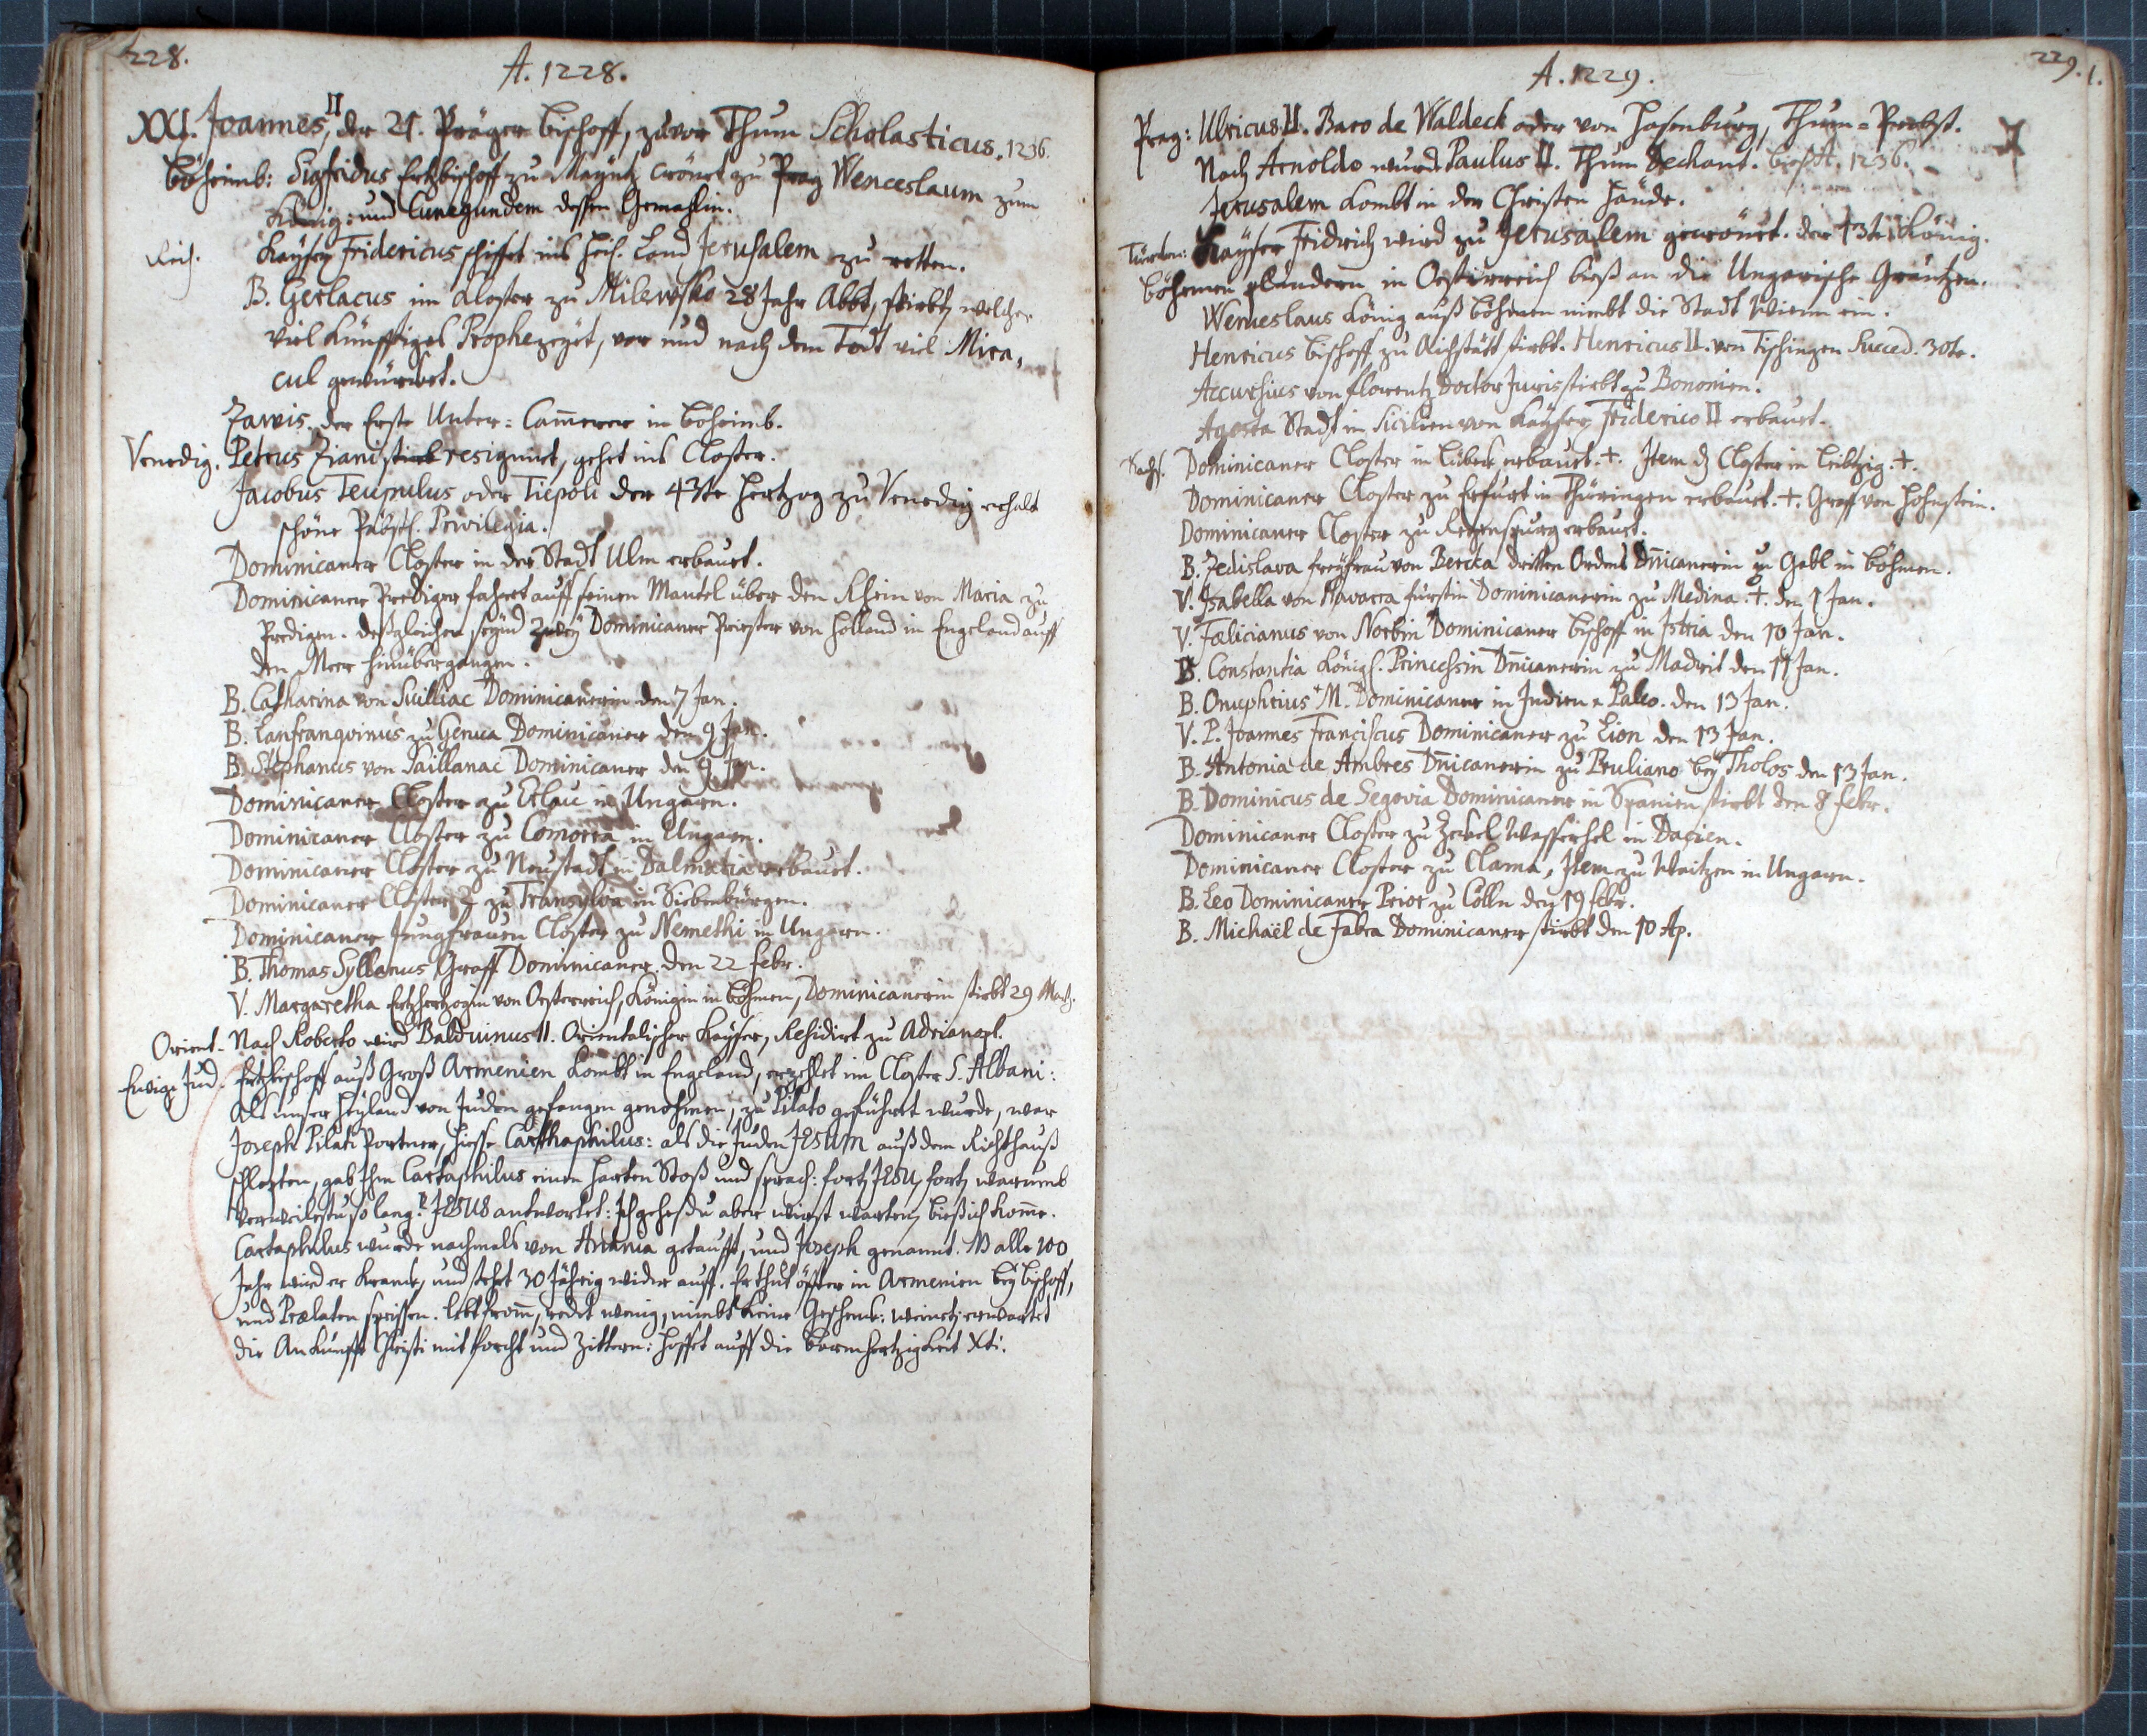 228.
A. 1228.
XXI. Joannes II, der 21. Präger Bischoff, zuvor Thum Scholasticus. 1236.
Böheimb: Sigfridus Ertzbischoff zu Mayntz crönet zu Prag Wenceslaum zum
König: und Cunegundem dessen Gemahlin.
Reich. Kayser Fridericus schiffet ins heil. Land Jerusalem zu retten.
B. Gerlacus im Kloster zu Milewsko 28 Jahr Abbt, stirbt, welcher
viel künfftiges Prophezeyet, vor und nach dem Todt viel Mira,
cul gewürcket.
Zawis. der Erste Unter: Cammerer in Böheimb.
Venedig. Petrus Ziani resigniret, gehet ins Closter.
Jacobus Teupulus oder Tiepoli der 43te Hertzog zu Venedig erhalt
schöne Päbstl. Privilegia.
Dominicaner Closter in der Stadt Ulm erbauet.
Dominicaner Prediger fahret auff seinen Mantel über den Rhein von Maria zu
Predigen. deßgleichen seynd zwey Dominicaner Priester von Holland in Engeland auff
den Meer hinübergangen.
B. Catharina von Suilliac Dominicanerin den 7 Jan.
B. Lanfranquinus zu Genua Dominicaner den 9 Jan.
B. Stephanus von Saillanac Dominicaner den 9 Jan.
Dominicaner Closter zu Erlau in Ungarn.
Dominicaner Closter zu Comorra in Ungarn.
Dominicaner Closter zu Neustadt in Dalmatia erbauet.
Dominicaner Closter 2 zu Transylva in Siebenbürgen.
Dominicaner Jungfrauen Closter zu Nemethi in Ungarn.
B. Thomas Syllanus Graff Dominicaner. den 22 Febr.
V. Margaretha Ertzhertzogin von Oesterreich, Königin in Böhmen, Dominicanerin stirbt 29 Martz.
Orient. Nach Roberto wird Balduinus II. Orientalischer Kayser, Residirt zu Adrianopl.
Ewige Jud. Ertzbischoff auß Groß Armenien kombt in Engeland, erzehlet im Closter S. Albani:
Als unser Heyland von Juden gefangen genohmen, zu Pilato geführet wurde, war
Joseph Pilati Portner, hiesse Carthaphilus: als die Juden JESUM auß dem Richthauß
schlepten, gab Ihm Cartaphilus einen harten Stoß und sprach: fort JESU, fort, warumb
verweilestu so lang? JESUS antwortet: Ich gehe, du aber wirst warten, biß ich komme.
Cartaphilus wurde nachmals von Anania getaufft, und Joseph genannt. NB alle 100
Jahr wird er kranck, und stehet 30 Jährig wider auff. Er thut öffter in Armenien bey Bischoff,
und Prælaten speissen. lebt fromm, redet wenig, nimbt keine Geschenck: weinet, erwartet
die Ankunfft Christi mit forcht und Zittern: hoffet auff die Barmhertzigkeit Xti.
229. 1.
A. 1229.
Prag: Ulricus II. Baro de Waldeck oder von Hasenburg, Thum=Probst.
Nach Arnoldo wurde Paulus II. Thum Dechant. bieß A. 1236.
Jerusalem kombt in der Christen Hände.
Kayser Fridrich wird zu Jerusalem gecrönet. der König.
Böhmen plündern in Oesterreich bieß an die Ungarische Gräntzen.
Wenceslaus König auß Böhmen nimbt die Stadt Wienn ein.
Henricus Bischoff zu Aichstätt stirbt. Henricus II. von Tischingen Succed. 30te.
Accursius von Florentz Doctor Juris stirbt zu Bononien.
Agosta Stadt in Sicilien von Kayser Friderico II erbauet.
Dominicaner Closter in Lübek erbauet. +. Item Closter in Leibtzig. +.
Dominicaner Closter zu Erfurt in Thüringen erbauet. +. Graff von Hohnstein.
Dominicaner Closter zu Regenspurg erbauet.
B. Zedislava Freyfrau von Bercka dritten Ordens Dnicanerin zu Gabl in Böhmen.
V. Isabella von Navarra Fürstin Dominicanerin zu Medina. +. den 1 Jan.
V. Fælicianus von Norbin Dominicaner Bischoff in Istria den 10 Jan.
B. Constantia Königl. Princessin Dnicanerin zu Madrit den 11 Jan.
B. Onuphrius + M. Dominicaner in Indien den 13 Jan.
V. P. Joannes Franciscus Dominicaner zu Lion den 13 Jan.
B. Antonia de Ambres Dnicanerin zu Pruliano bey Tholos den 13 Jan.
B. Dominicus de Segovia Dominicaner in Spanien stirbt den 8 Febr.
Dominicaner Closter zu Zeckel Wasserhel in Dacien.
Dominicaner Closter zu Clama, Item zu Waitzen in Ungarn.
B. Leo Dominicaner Prior zu Cölln den 19 Febr.
B. Michaël de Fabra Dominicaner stirbt den 10 Ap.